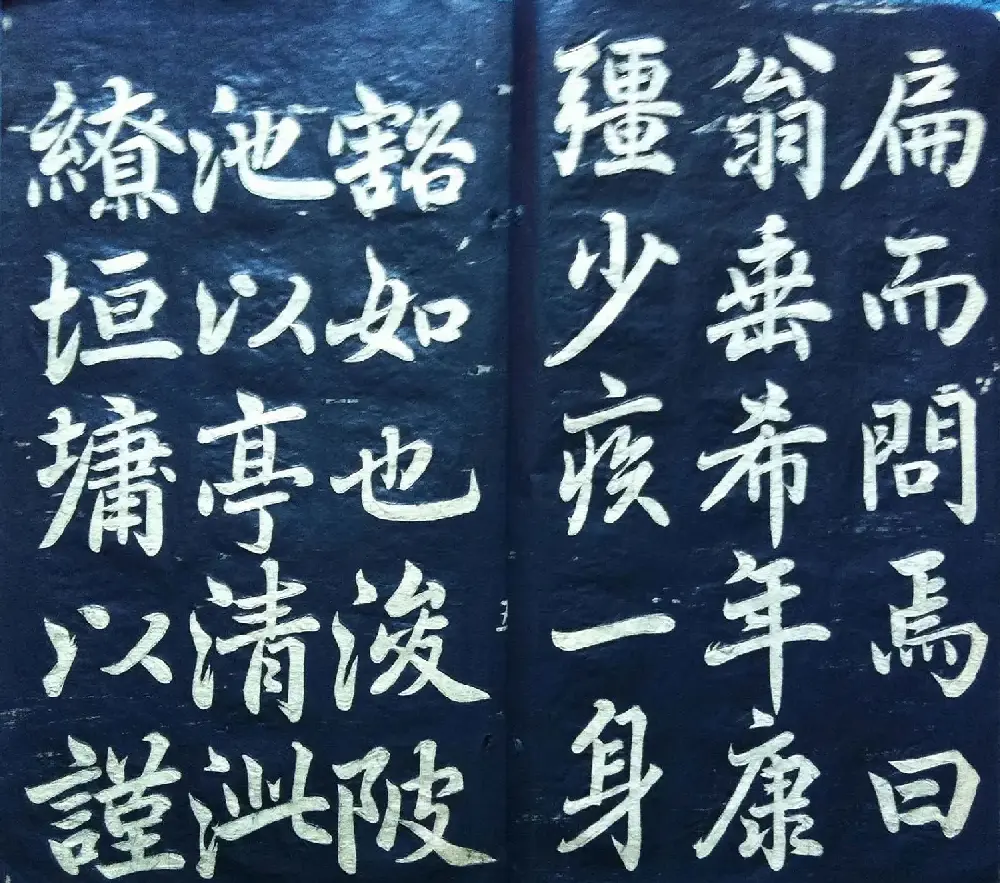 扁而問焉曰
翁垂希年康
彊少疾一身
豁如也浚陂
池以亭清泚
繚垣墉以謹